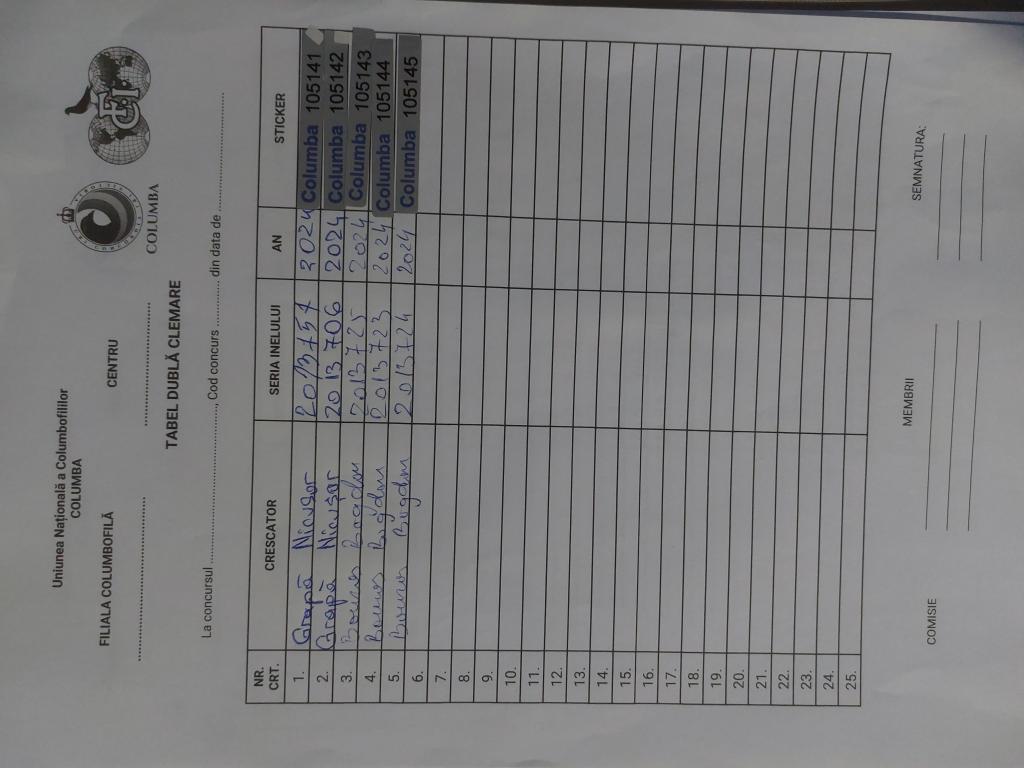 Uniunea Națională a Columbofililor
COLUMBA
COLUMBA
FCI
FILIALA COLUMBOFILĂ CENTRU
TABEL DUBLĂ CLEMARE
La concursul ..............., Cod concurs ............ din data de ...............
NR. CRT. CRESCATOR SERIA INELULUI AN STICKER
1. Grapă Nicușor 2013757 2024 Columba 105141
2. Grapă Nicușor 2013706 2024 Columba 105142
3. Bogdan 2013725 2024 Columba 105143
4. Bogdan 2013723 2024 Columba 105144
5. Bogdan 2013724 2024 Columba 105145
6.
7.
8.
9.
10.
11.
12.
13.
14.
15.
16.
17.
18.
19.
20.
21.
22.
23.
24.
25.
COMISIE MEMBRII SEMNATURA: